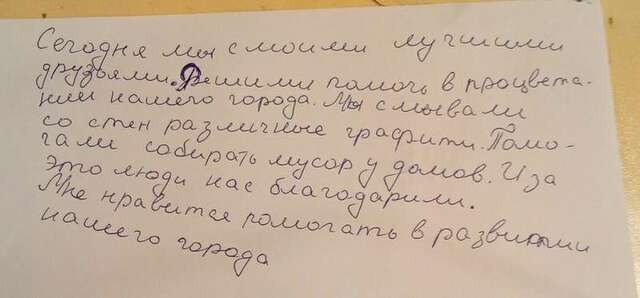 Сегодня мы с моими лучшими
друзьями. Решили помочь в процвета-
нии нашего города. Мы смывали
со стен различные графити. Помо-
гали собирать мусор у домов. И за
это люди нас благодарили.
Мне нравится помогать в развитии
нашего города